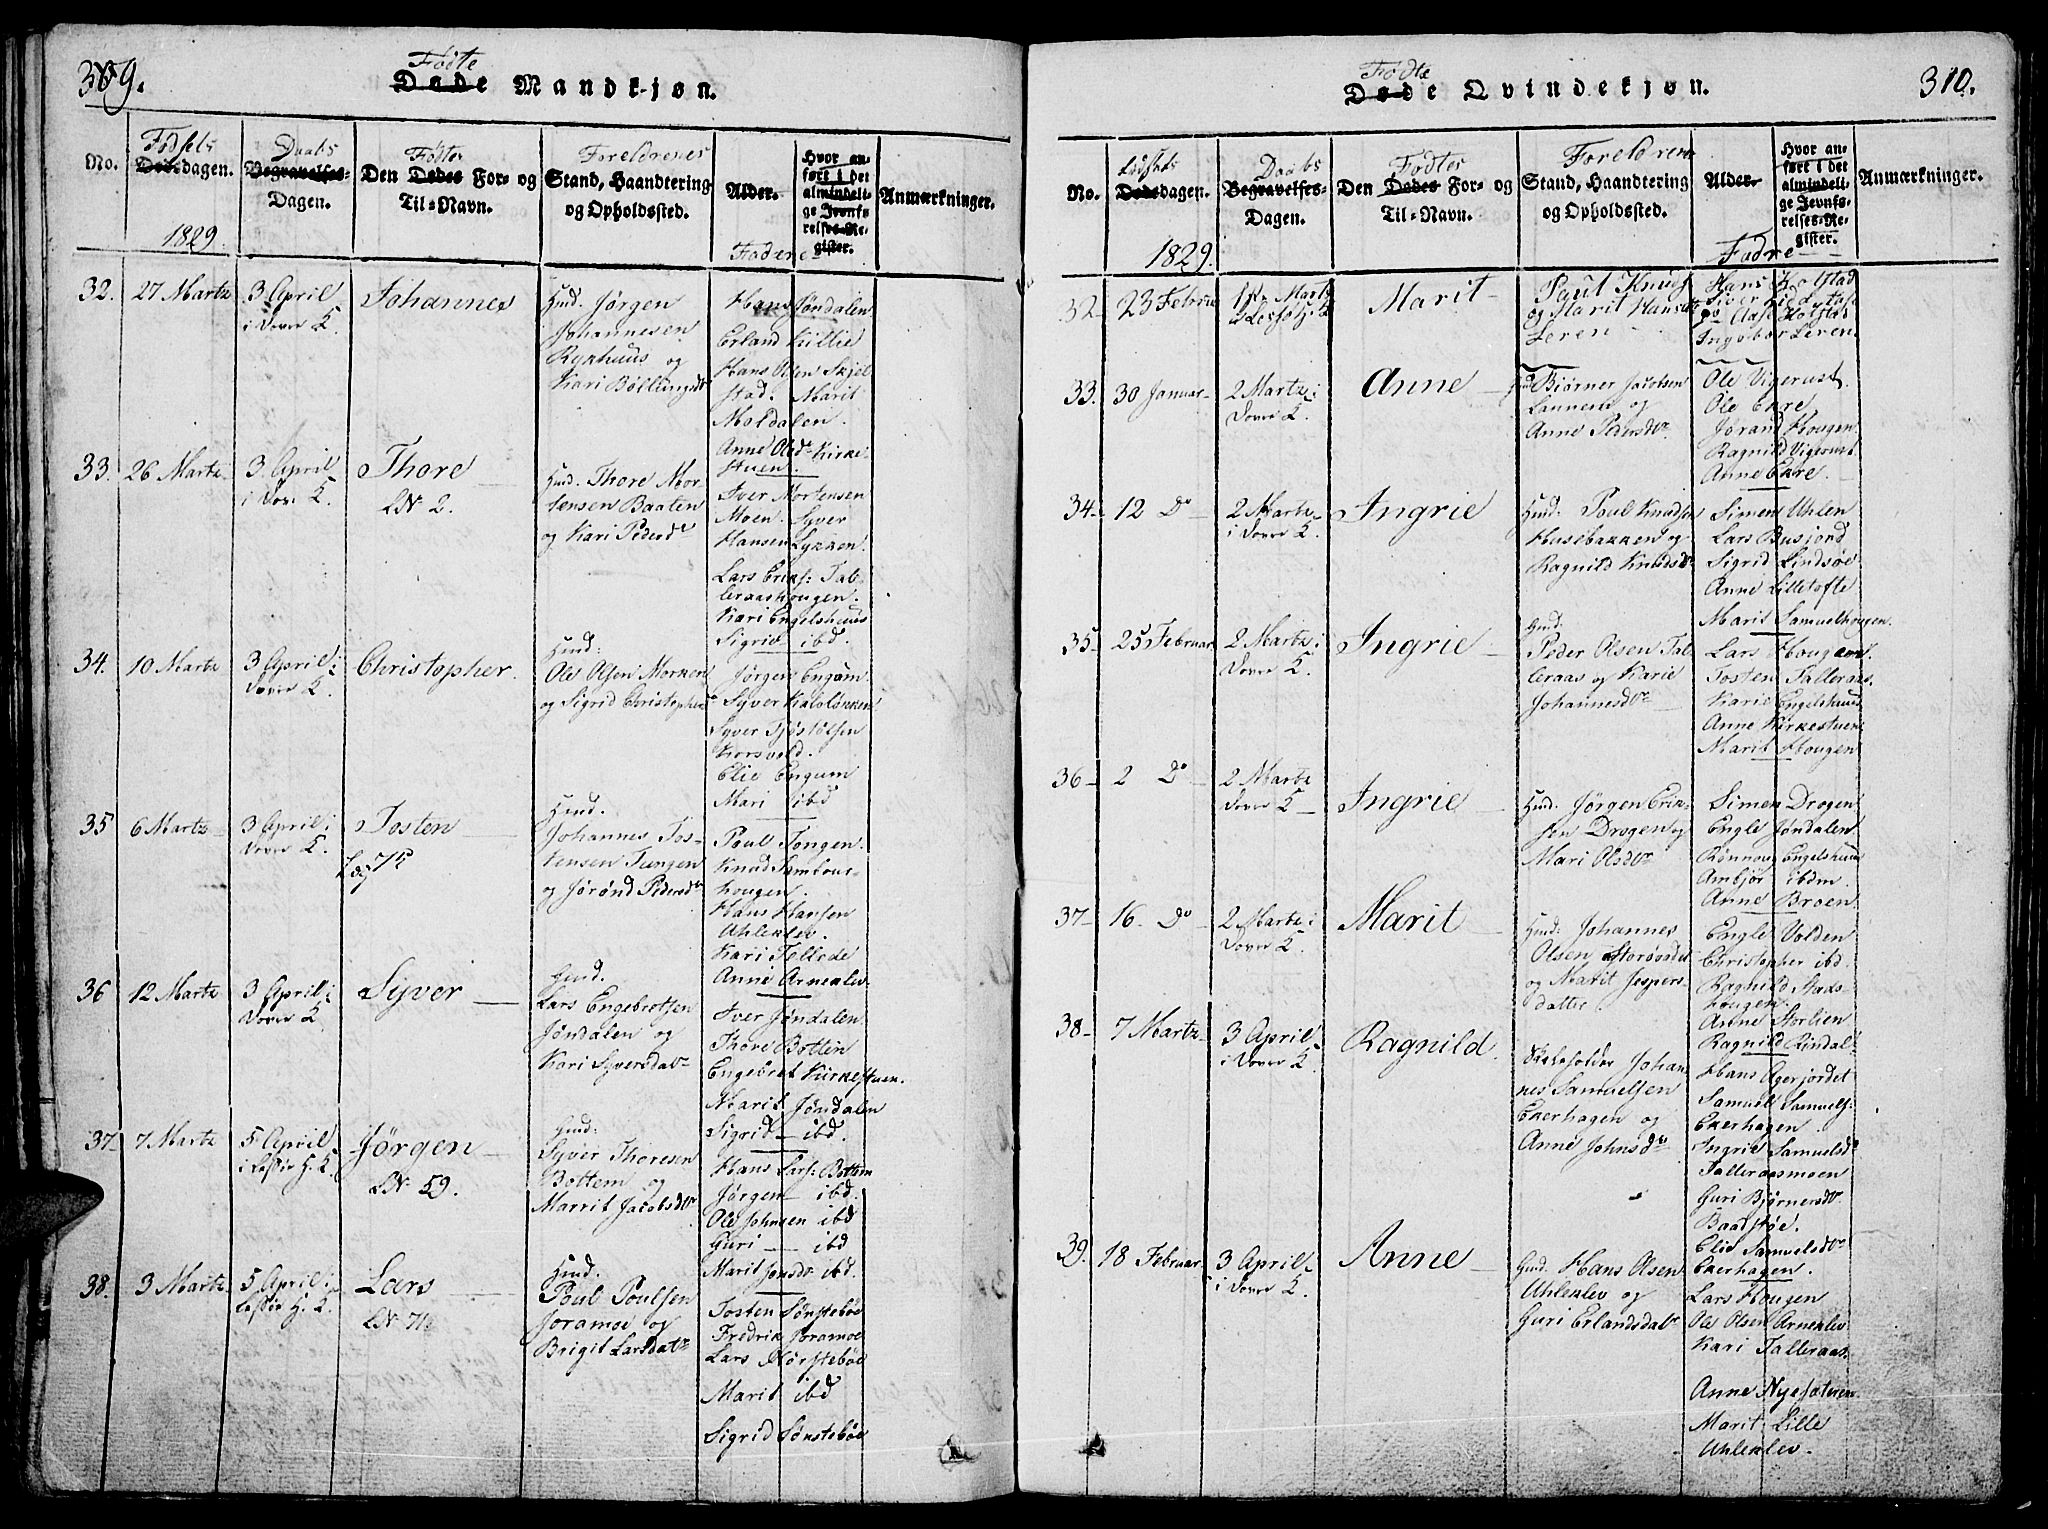 309.
Fødte
Døde Mandkjøn.
No.
Fødsels
Dødsdagen.
1829.
Daabs
Begravelses-
Dagen.
Fødtes
Den Dødes For- og
Til-Navn.
Foreldrenes
Stand, Haandtering
og Opholdssted.
Alder.
Faderne
Hvor an-
ført i det
almindeli-
ge Jevnfø-
relses-Re-
gister.
Anmærkninger.
32. 27 Martz 3 April
i Dovre K. Johannes
Huusd. Jørgen
Johannesen
Rykhuus og
Kari Bottungsdr
Hans Jøndalen
Erland Killie
Hans Olsen Skjel
stad. Marit
Moldalen.
Anne Olsdr Kirke-
stuen.
33. 26 Martz 3 April
i Dov. K. Thore
LN 2.
Huusd. Thore Mor-
tensen Baaten
og Kari Pedersdr
Iver Mortensen
Moen. Syver
Hansen Lykken.
Lars Eriks: Tal-
leraashougen.
Kari Engelshuus
Sigrid ibd.
34. 10 Martz 3 April i
Dovre K. Christopher.
Huusd:
Ole Olsen Morken
og Sigrid Christophersdr
Jørgen Engum.
Syver Kaldløkken
Syver Tjøstolfsen
Korsvold.
Elie Engum
Mari ibd
35 6 Martz 3 April i
Dovre K. Tosten
Log 75
Huusd.
Johannes Tos-
tensen Tungen
og Jørønd Pedersdr
Poul Tongen.
Knud Samlous-
hougen.
Hans Hansen
Uhleklev.
Kari Tellede
Anne Arneklev.
36 12 Martz 3 April i
Dovre K. Syver
Huusd.
Lars Engebretsen
Jøndalen og
Kari Syversdatr
Iver Jøndalen
Thore Botten
Engebret Kirkestuen.
Marit Jøndalen
Sigrid ibd.
37 7 Martz 5 April
i Lessø H. K. Jørgen
LN 59.
Huusd:
Syver Thoresen
Bottem og
Marrit Jacobsdr
Hans Lars: Bottem
Jørgen ibd.
Ole Johnsen ibd
Guri ibd
Marit Jonsdr ibd.
38. 3 Martz 5 April i
Lessø H. K. Lars
LN 71
Huusd.
Poul Poulsen
Joramoe og
Brigit Larsdatr
Tosten Sønstebøe
Fredrik Joramoe
Lars Nørstebøe
Marit ibd
Sigrid Sønstebøe
310.
Fødte
Døde Qvindekjøn.
No.
Fødsels
Dødsdagen.
1829.
Daabs
Begravelses-
Dagen.
Fødtes
Den Dødes For- og
Til-Navn.
Foreldrene
Stand, Haandtering
og Opholdssted.
Alder.
Fadre
Hvor an-
ført i det
almindeli-
ge Jevnfø-
relses-Re-
gister.
Anmærkninger.
32 23 Februar 1ste Martz
i Lessøe K. Marit
Paul Knuds
og Marit Hansdtr
Leren
Hans Kolstad
Siver
Do Aase Kolstad
Ingebor Leren.
33. 30 Januar 2 Martz i
Dovre K. Anne
Bjørner Jacobsen
Lannem og
Anne Pedersdr.
Ole Vigerust.
Ole Ekre
Jørand Hougen
Ragnild Vigerust
Anne Ekre.
34. 12 Do 2 Martz
i Dovre K. Ingrie
Huusd. Poul Knudsen
Husebakken og
Ragnild Knudsdr
Simen Uhlen
Lars Busjord
Sigrid Lindsøe
Anne Lilletofte
Marit Samuelhougen.
35 25 Februar 2 Martz i
Dovre K. Ingrie
Huusd.
Peder Olsen Tal-
leraas og Karie
Johannesdtr
Lars Hougen.
Tosten Talleraas.
Karie Engelshuus
Anne Kirkestuen
Marit Hougen
36 2 Do 2 Martz
Dovre K Ingrie
Huusd. Jørgen Erik-
sen Drogen og
Mari Olsdtr
Simen Drogen
Engle Jøndalen
Rønnou Engelshuus
Ambjør ibdm.
Anne Broen
37 16. Do 2 Martz i
Dovre K. Marit
Huusd. Johannes
Olsen Storøvadet
og Marit Jespers
datter.
Engle Volden
Christopher ibd.
Ragnild Stads-
hougen.
Anne Storlien
Ragnild Rindal
38 7 Martz 3 April
i Dovre K. Ragnild.
Skieholder Johan
nes Samuelsen
Ekerhagen og
Anne Johnsdtr
Hans Agerjordet
Samuel Samuels:
Ekerhagen.
Ingrie Samuelsdr
Talleraasmoen
Guri Bjørnersdtr
Baadstøe.
Elie Samuelsdtr
Ekerhagen.
39. 18 Februar 3 April
i Dovre K. Anne
Huusd. Hans Olsen
Uhleklev og
Guri Erlandsdatr
Lars Hougen
Ole Olsen Arneklev
Kari Talleraas.
Anne Nyesæteren
Marit Lille
Uhleklev.